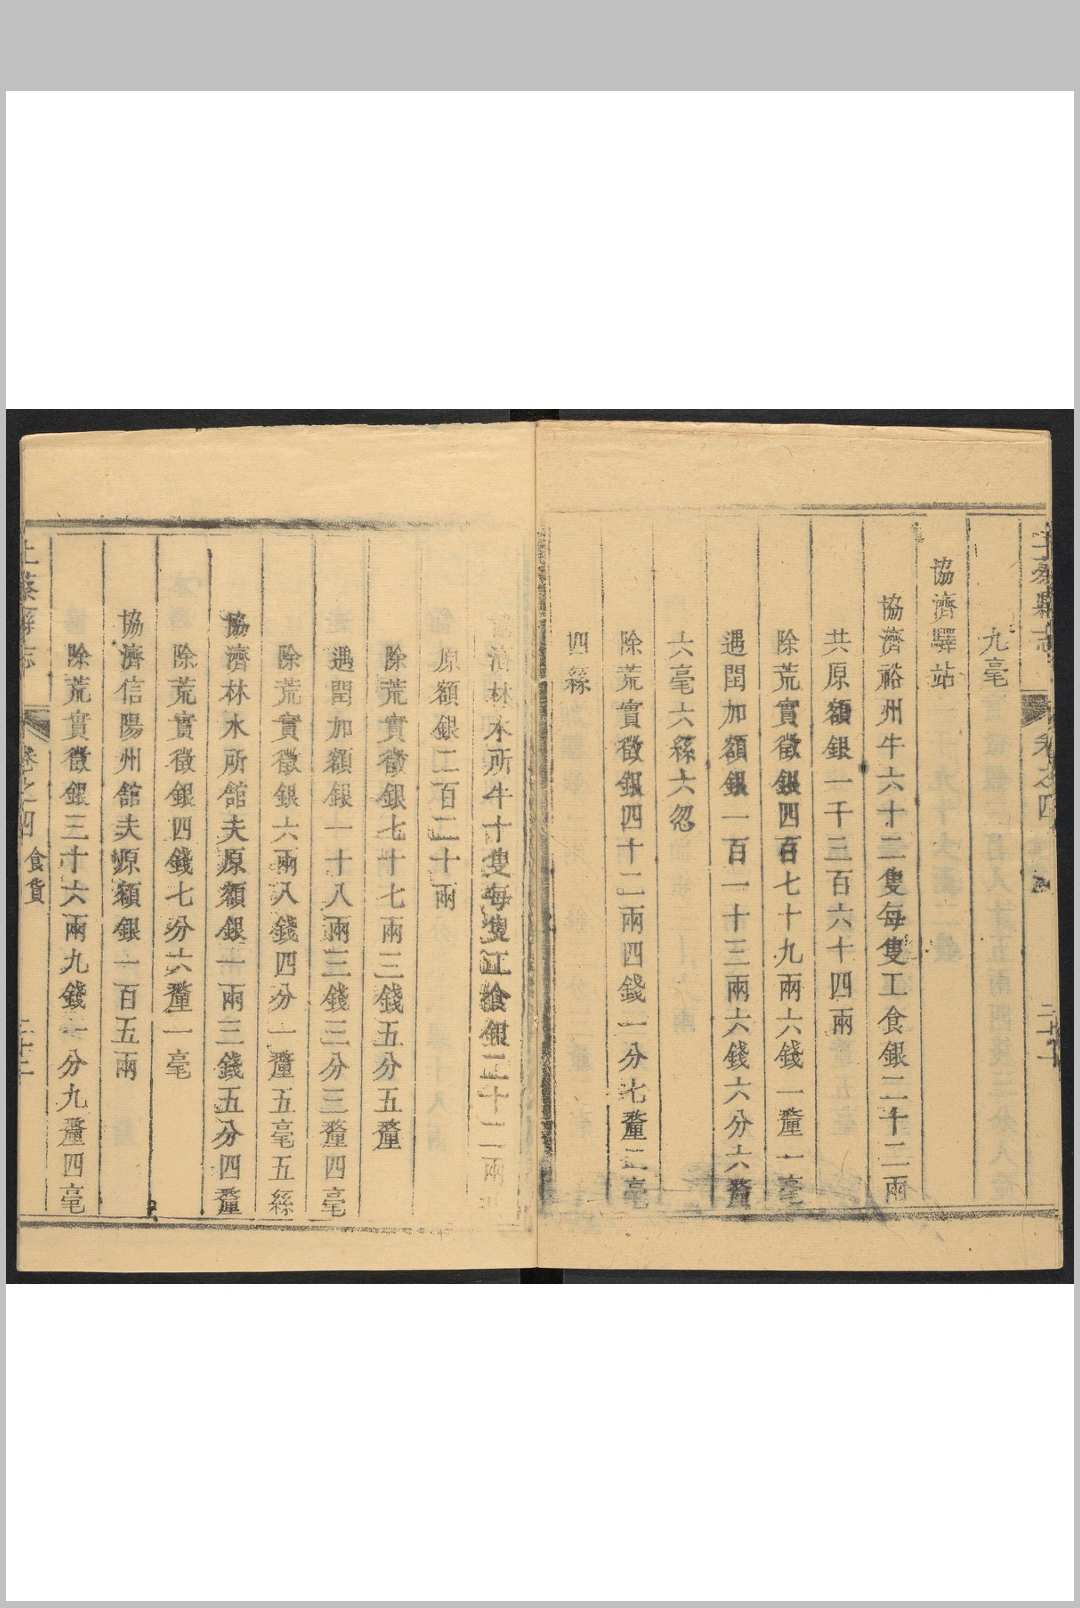 上蔡縣志
卷之四
九毫
協濟驛站
協濟裕州牛六十二隻每隻工食銀二十二兩
共原額銀一千三百六十四兩
除荒實徵銀四百七十九兩六錢一釐一毫
遇閏加額銀一百一十三兩六錢六分六釐
六毫六絲六忽
除荒實徵銀四十二兩四錢一分七釐二毫
四絲
濟林水所牛十隻每隻工食銀二十二兩
原額銀二百二十兩
除荒實徵銀七十七兩三錢五分五釐
遇閏加額銀一十八兩三錢三分三釐四毫
除荒實徵銀六兩八錢四分一釐五毫五絲
協濟林水所館夫原額銀一兩三錢五分四釐
除荒實徵銀四錢七分六釐一毫
協濟信陽州館夫原額銀一百五兩
除荒實徵銀三十六兩九錢一分九釐四毫
上蔡縣志
卷之四
食貨